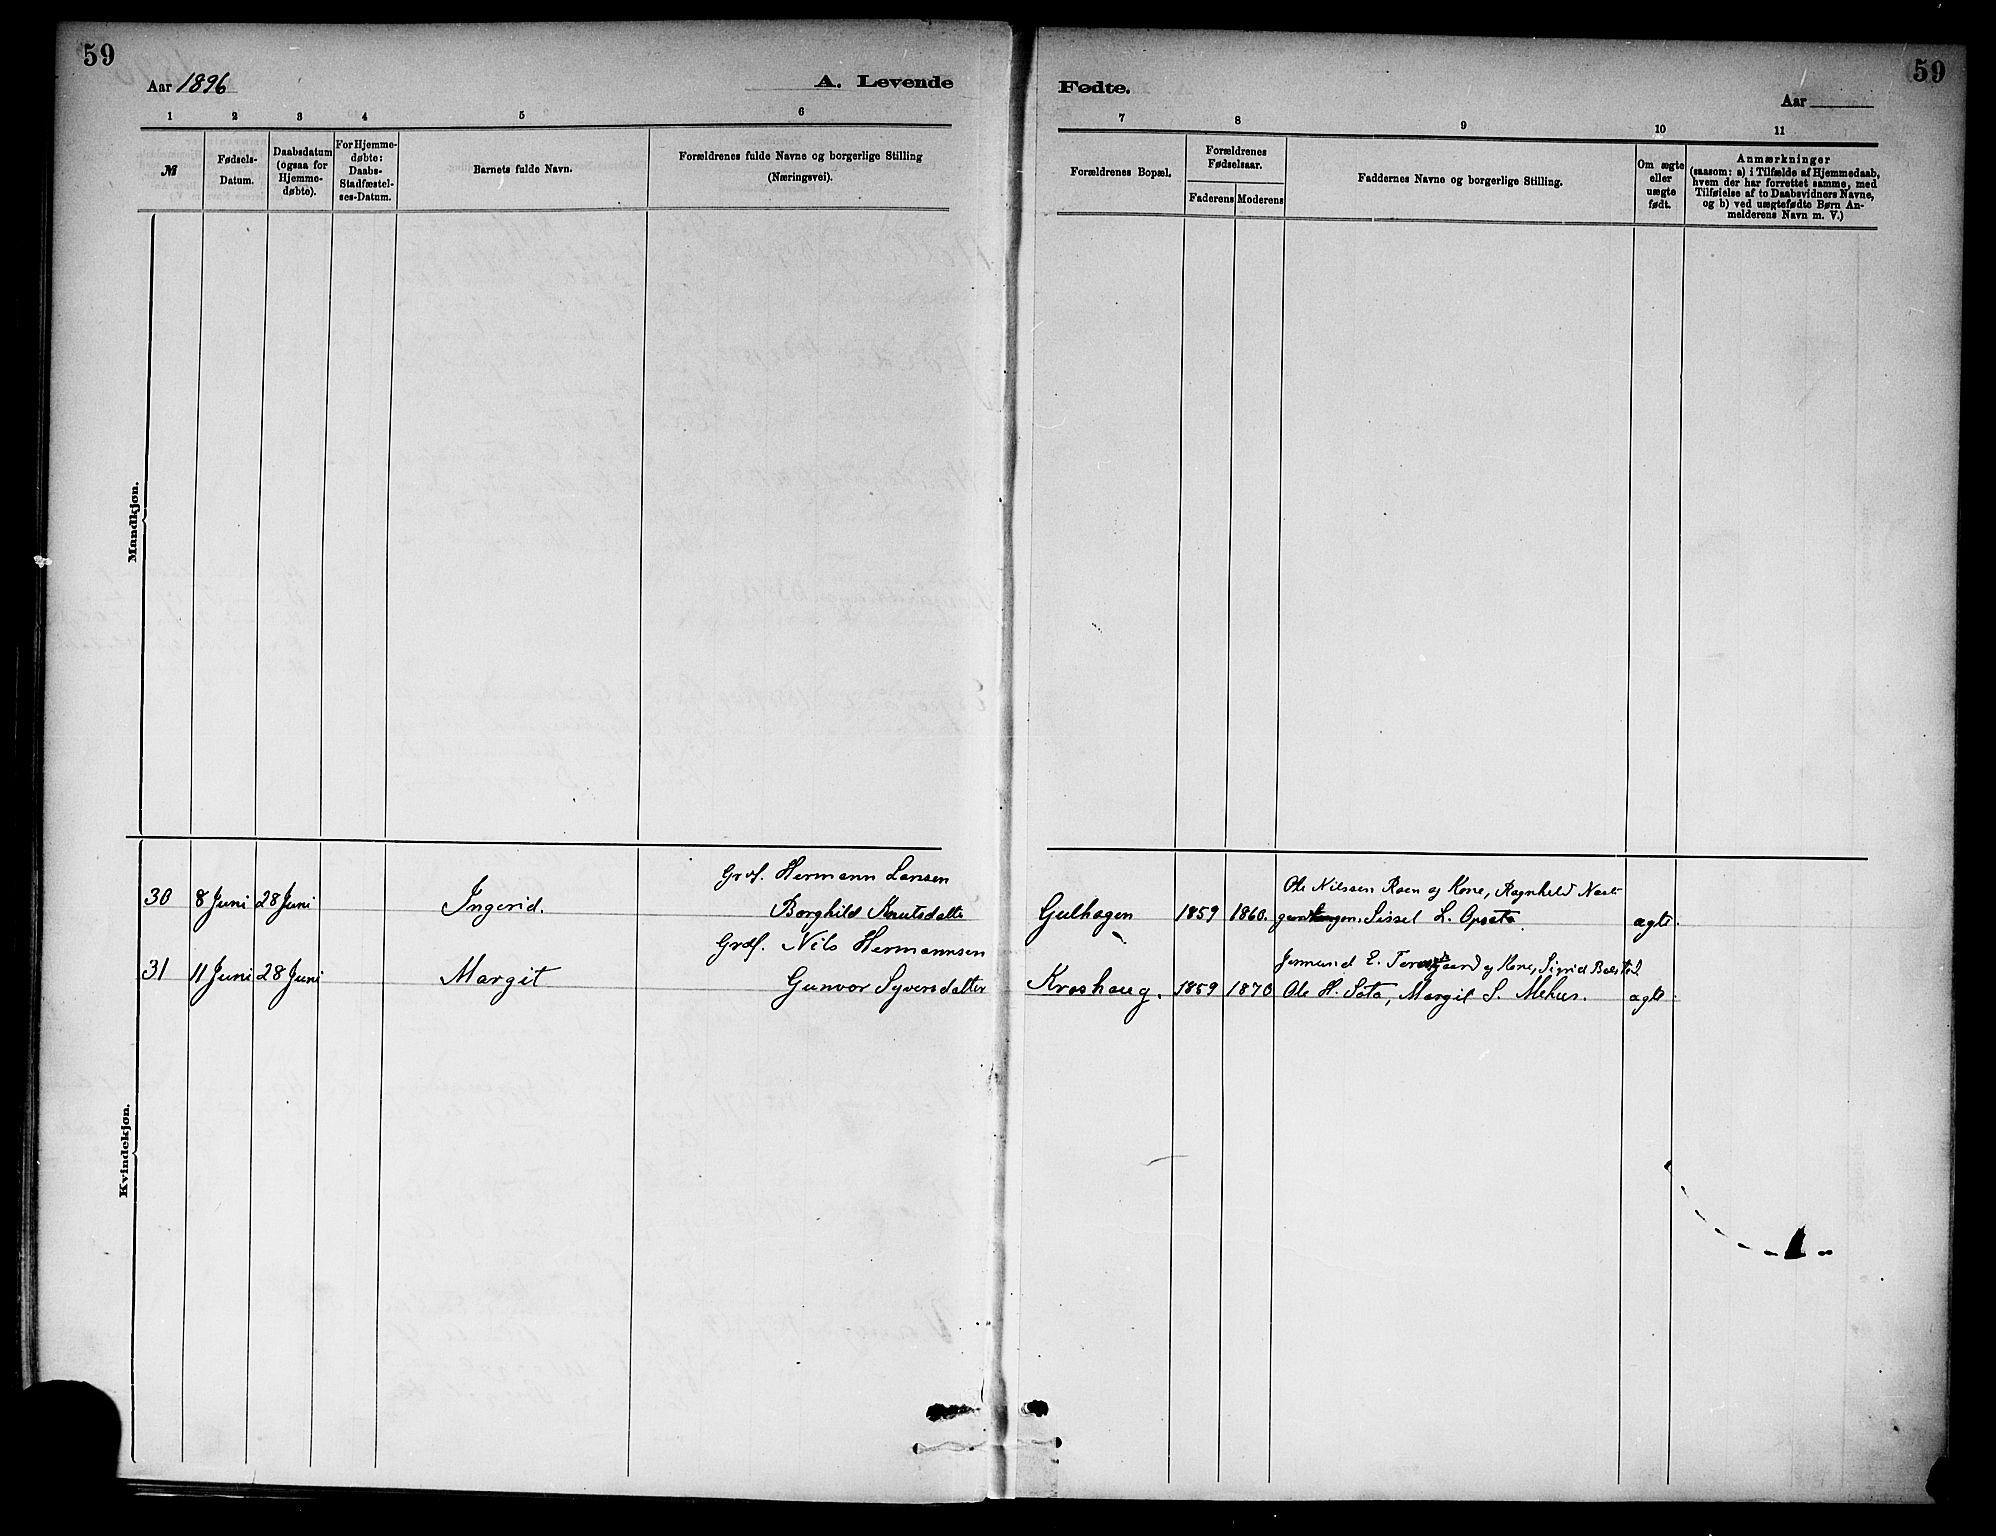 59
Aar 1896
A. Levende
1 2 3 4 5 6
№
Fødsels-
Datum.
Daabsdatum
(ogsaa for
Hjemme-
døbte).
For Hjemme-
døbte:
Daabs-
Stadfæstel-
ses-Datum.
Barnets fulde Navn.
Forældrenes fulde Navne og borgerlige Stilling
(Næringsvei).
Mandkjøn.
Kvindekjøn.
Hermann Larsen
30 8 Juni 28 Juni Ingerid. Borghild Knutsdatter
Nils Hermannsen
31 11 Juni 28 Juni Margit Gunvor Syversdatter
59
Fødte.
Aar
7 8 9 10 11
Forældrenes Bopæl.
Forældrenes
Fødselsaar.
Faderens Moderens
Faddernes Navne og borgerlige Stilling.
Om ægte
eller
uægte
født.
Anmærkninger
(saasom: a) i Tilfælde af Hjemmedaab,
hvem der har forrettet samme, med
Tilføielse af to Daabsvidners Navne,
og b) ved uægtefødte Børn An-
melderens Navn m. V.)
Ole Nilssen Roen og Kone, Ragnhild
Gulhagen 1859 1860. Sissel L. Opsata. ægte.
og Kone, Sigrid
Kroshaug. 1859 1870 Ole H. Sata, Margit S. Mehus. ægte.